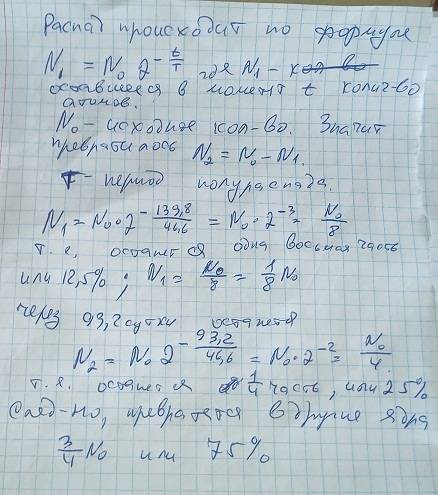 Распад происходит по формуле
N₁ = N₀ 2^(-t/T) где N₁ -
оставшееся в момент t колич-во
атомов.
N₀ - исходное кол-во. Значит
превратилось N₂ = N₀ - N₁.
T - период полураспада.
N₁ = N₀ · 2^(-139,8/46,6) = N₀ · 2^(-3) = N₀/8
т.е. останется одна восьмая часть
или 12,5% ; N₁ = N₀/8 = 1/8 N₀
через 93,2 сутки останется
N₂ = N₀ 2^(-93,2/46,6) = N₀ · 2^(-2) = N₀/4.
т.е. останется 1/4 часть, или 25%
След-но, превратется в другие ядра
3/4 N₀ или 75%